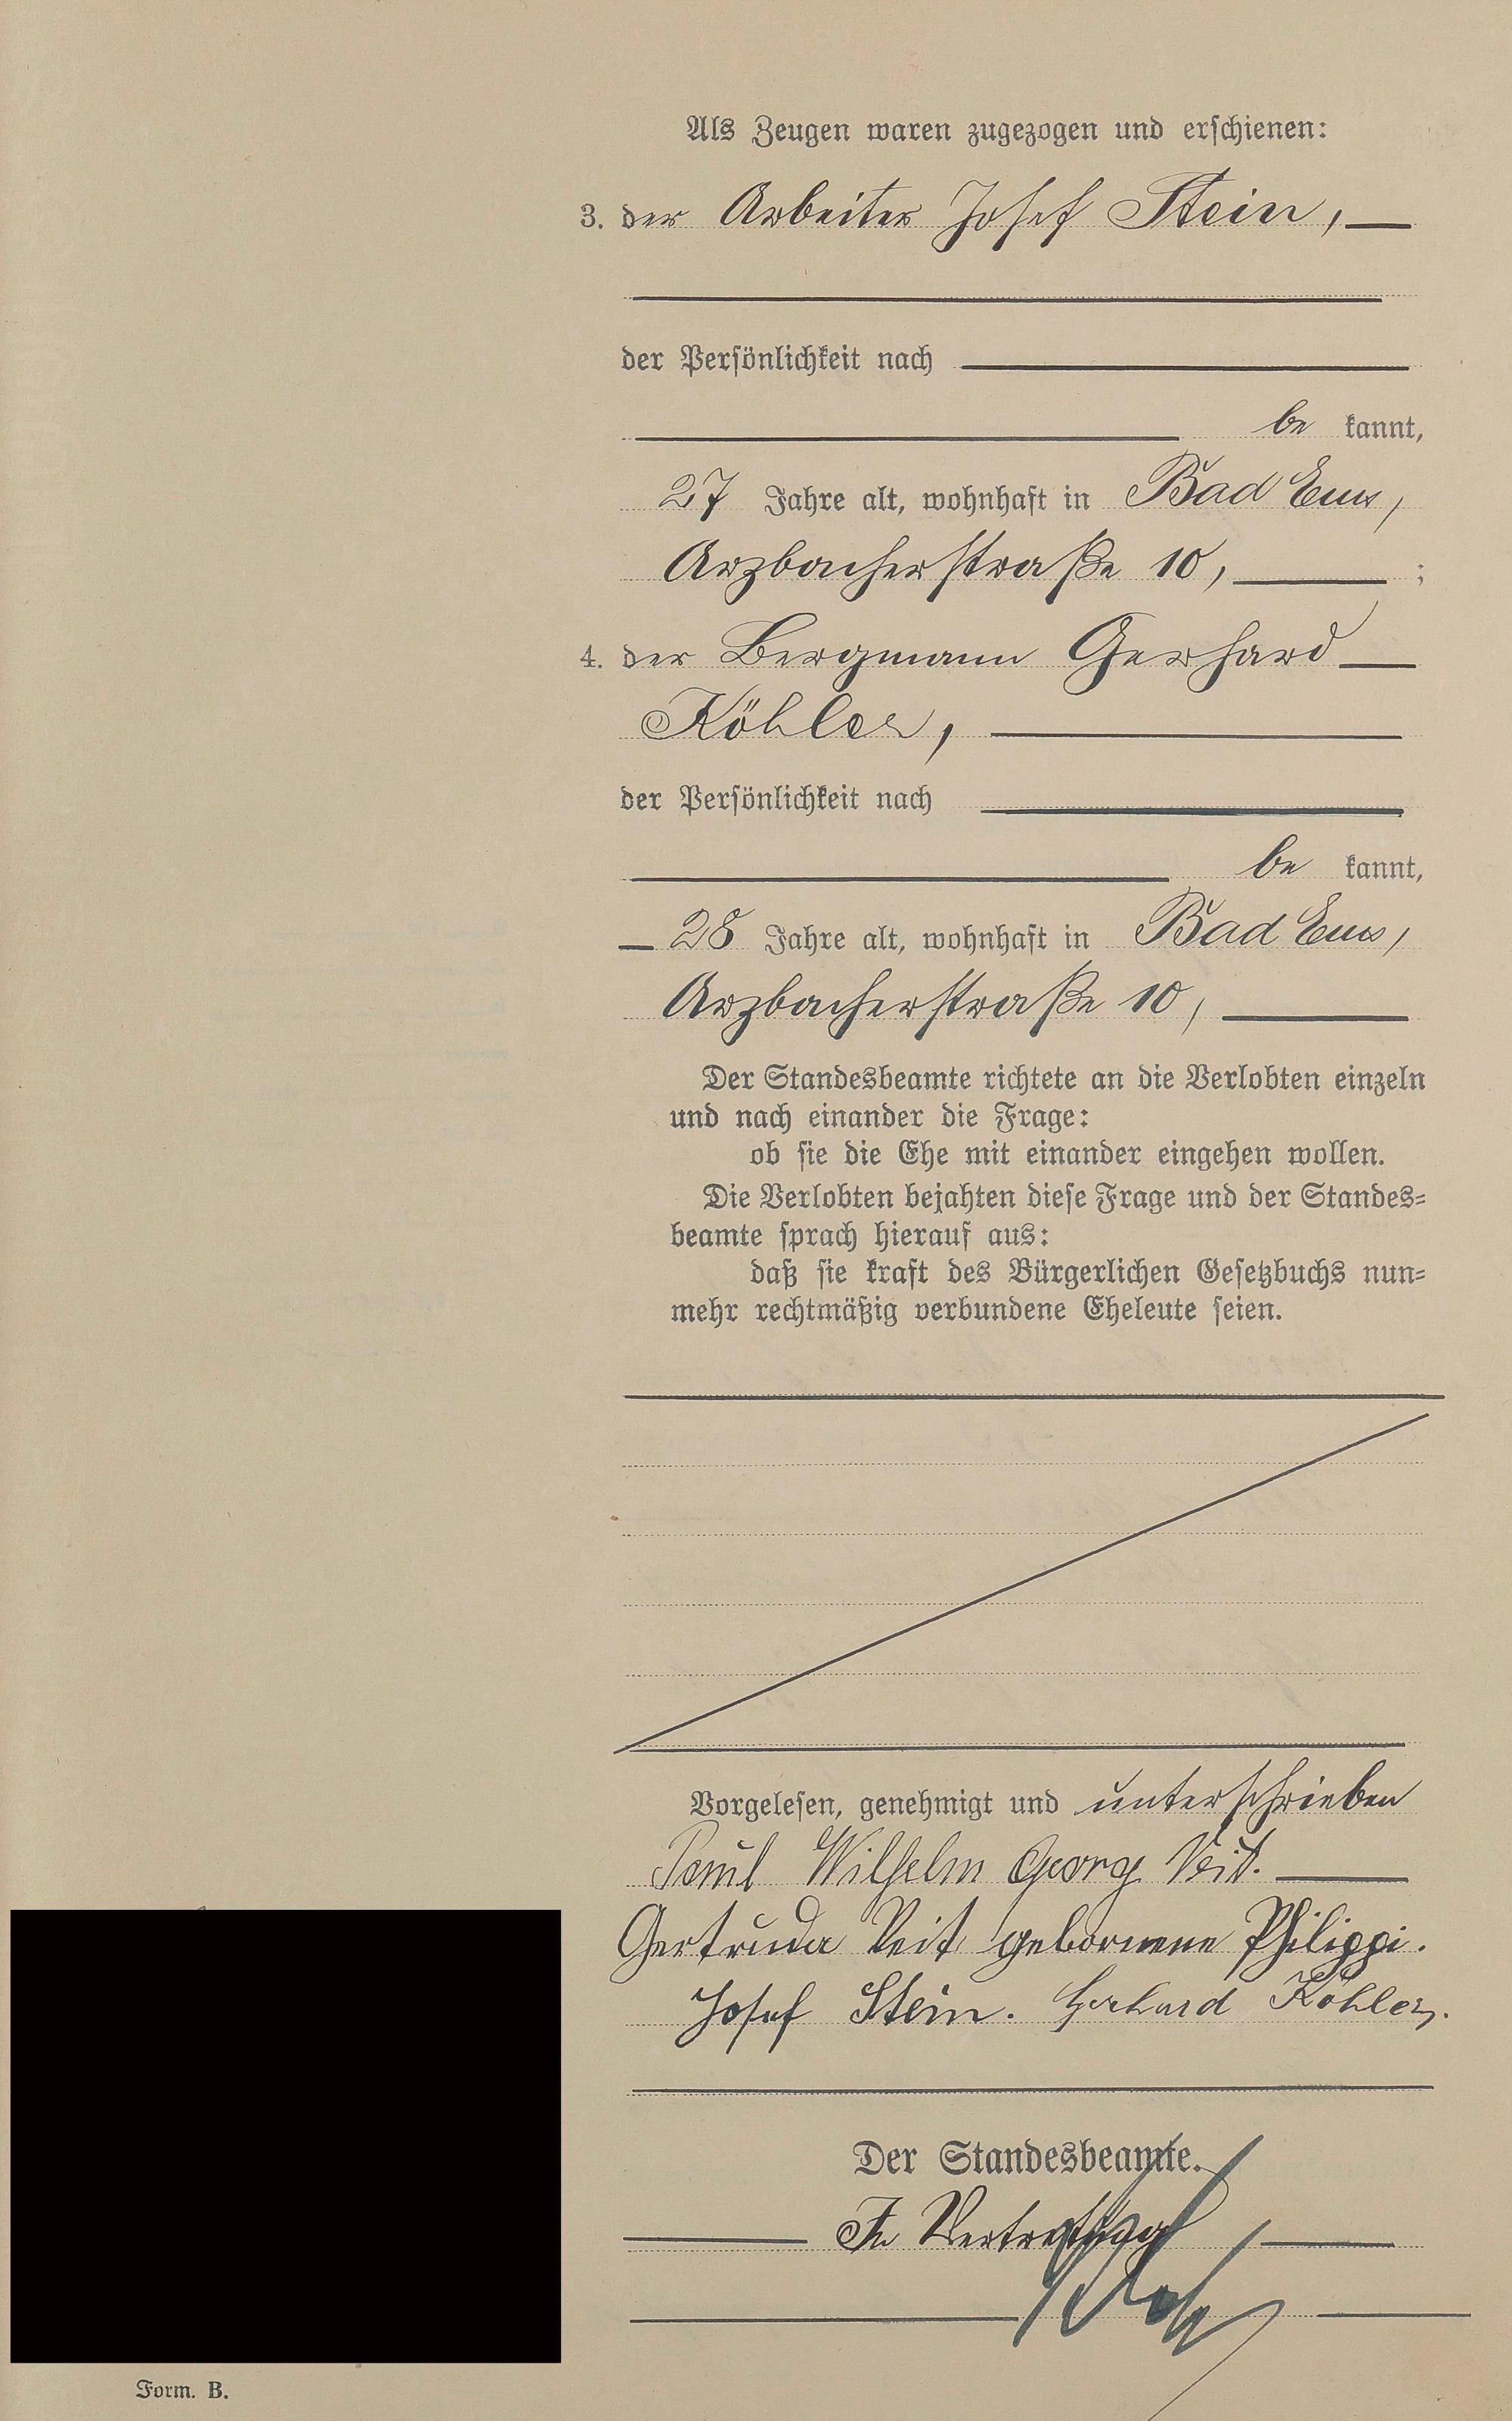 Als Zeugen waren zugezogen und erschienen:
3. der Arbeiter Josef Stein,
der Persönlichkeit nach
be kannt,
27 Jahre alt, wohnhaft in Bad Ems,
Arzbacherstraße 10, ;
4. der Bergmann Gerhard
Köhler,
der Persönlichkeit nach
be kannt,
28 Jahre alt, wohnhaft in Bad Ems,
Arzbacherstraße 10,
Der Standesbeamte richtete an die Verlobten einzeln
und nach einander die Frage:
ob sie die Ehe mit einander eingehen wollen.
Die Verlobten bejahten diese Frage und der Standes-
beamte sprach hierauf aus:
daß sie kraft des Bürgerlichen Gesetzbuchs nun-
mehr rechtmäßig verbundene Eheleute seien.
Vorgelesen, genehmigt und unterschrieben
Paul Wilhelm Georg Veit.
Gertruda Veit gebornene Philippi.
Josef Stein. Gerhard Köhler.
Der Standesbeamte.
In Vertretung
Form. B.